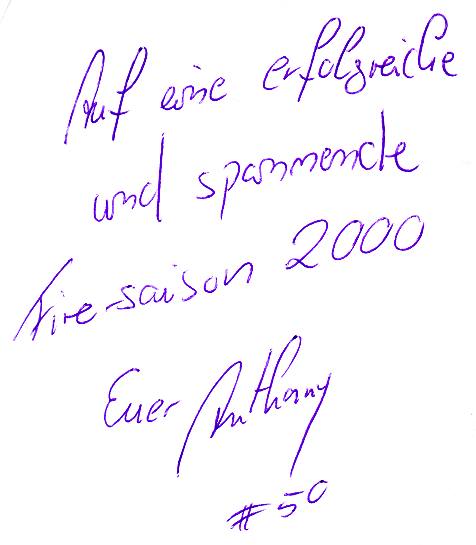 Auf eine erfolgreiche
und spannende
Fire-saison 2000
Euer Anthony
#50